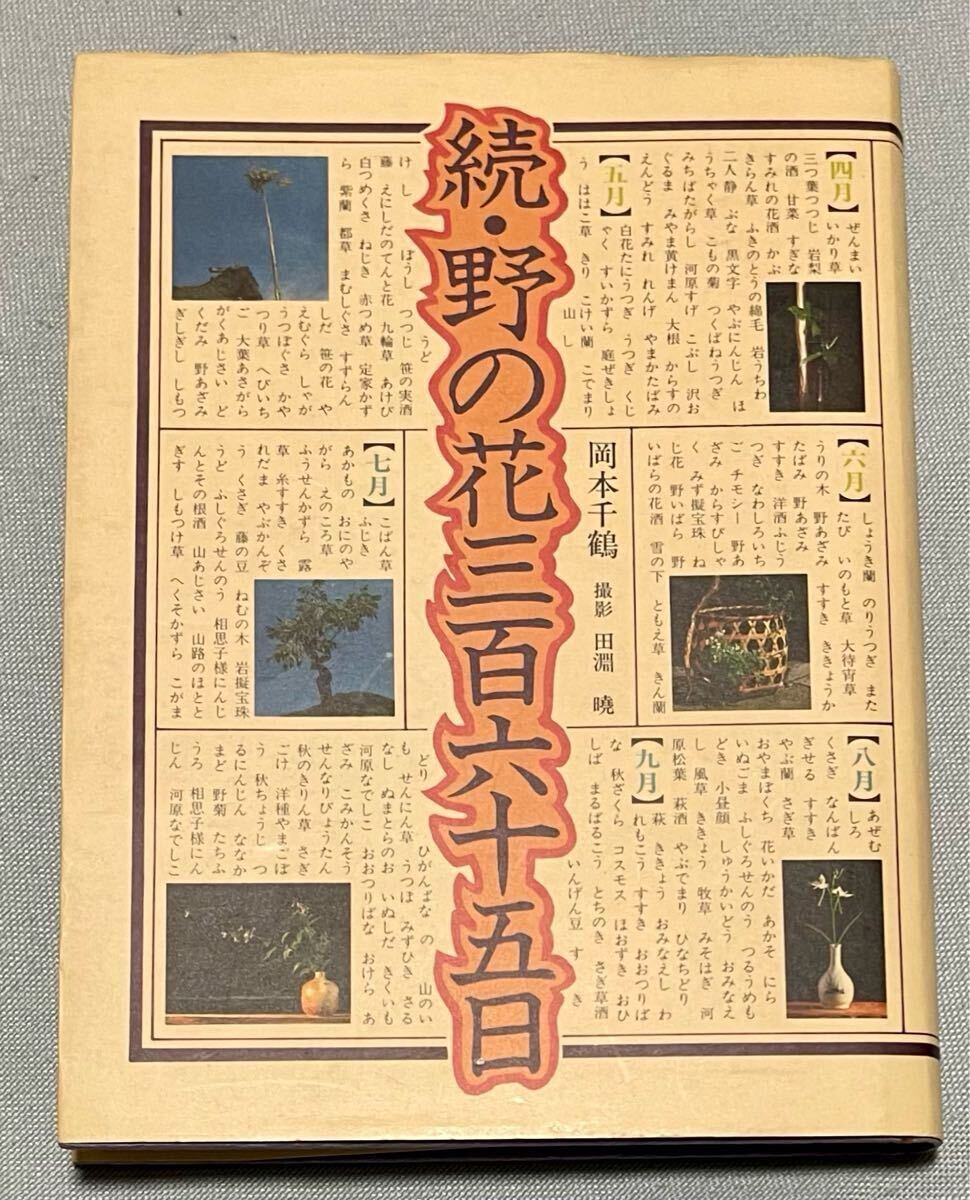 続・野の花三百六十五日
岡本千鶴
撮影 田淵 曉
【四月】
ぜんまい
いかり草
三つ葉つつじ 岩梨
の酒 甘菜 すぎな
すみれの花酒 かぶ
きらん草 ふきのとうの綿毛 岩うちわ
二人静 ぶな 黒文字 やぶにんじん ほ
うちゃく草 こもの菊 つくばねうつぎ
みちばたがらし 河原すげ こぶし 沢お
ぐるま みやま黄けまん 大根 からすの
えんどう すみれ れんげ やまかたばみ
【五月】
白花たにうつぎ うつぎ くじ
ゃく すいかずら 庭ぜきしょ
う ははこ草 きり こけい蘭 こでまり
山 し
うど
つつじ 笹の実酒
け し ぼうし
藤 えにしだのてんと花 九輪草 あけび
白つめくさ ねじき 赤つめ草 定家かず
ら 紫蘭 都草 まむしぐさ すずらん
しだ 笹の花 や
えむぐら しゃが
うつぼぐさ かや
つり草 へびいち
ご 大葉あさがら
がくあじさい ど
くだみ 野あざみ
ぎしぎし しもつ
【六月】
しょうき蘭 のりうつぎ また
たび いのもと草 大待宵草
うりの木 野あざみ すすき ききょうか
たばみ 野あざみ
すすき 洋酒ふじう
つぎ なわしろいち
ご チモシー 野あ
ざみ からすびしゃ
く みず擬宝珠 ね
じ花 野いばら 野
いばらの花酒 雪の下 ともえ草 きん蘭
【七月】
こばん草
ふじき
あかもの おにのや
がら えのころ草
ふうせんかずら 露
草 糸すすき くさ
れだま やぶかんぞ
う くさぎ 藤の豆 ねむの木 岩擬宝珠
うど ふしぐろせんのう 相思子様にんじ
んとその根酒 山あじさい 山路のほとと
ぎす しもつけ草 へくそかずら こがま
【八月】
あぜむ
しろ
くさぎ なんばん
ぎせる すすき
やぶ蘭 さぎ草
おやまぼくち 花いかだ あかそ にら
いぬごま ふしぐろせんのう つるうめも
どき 小昼顔 しゅうかいどう おみなえ
し 風草 ききょう 牧草 みそはぎ 河
原松葉 萩酒 やぶでまり ひなちどり
【九月】
萩 ききょう おみなえし わ
れもこう すすき おおつりば
な 秋ざくら コスモス ほおずき おひ
しば まるばるこう とちのき さぎ草酒
いんげん豆 す き
ひがんばな の 山のい
どり せんにん草 うつぼ みずひき さる
も
なし ぬまとらのお いぬしだ きくいも
河原なでしこ おおつりばな おけら あ
ざみ こみかんそう
せんなりびょうたん
秋のきりん草 さぎ
ごけ 洋種やまごぼ
う 秋ちょうじ つ
るにんじん ななか
まど 野菊 たちふ
うろ 相思子様にん
じん 河原なでしこ